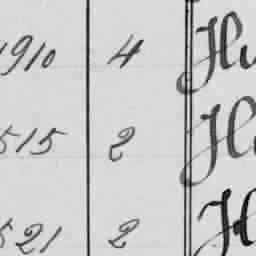 1910 4 Hu
515 2 H
521 2 H